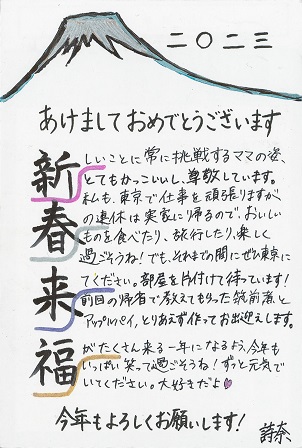 二〇二三
あけましておめでとうございます
新しいことに常に挑戦するママの姿、
とてもかっこいいし、尊敬しています。
私も、東京で仕事を頑張りますが
春の連休は実家に帰るので、おいしい
ものを食べたり、旅行したり、楽しく
過ごそうね!でも、それまでの間にぜひ東京に
来てください。部屋を片付けて待っています!
前回の帰省で教えてもらった筑前煮と
アップルパイ、とりあえず作ってお出迎えします。
福がたくさん来る一年になるよう、今年も
いっぱい笑って過ごそうね!ずっと元気で
いてください。大好きだよ♥
今年もよろしくお願いします!
詩奈